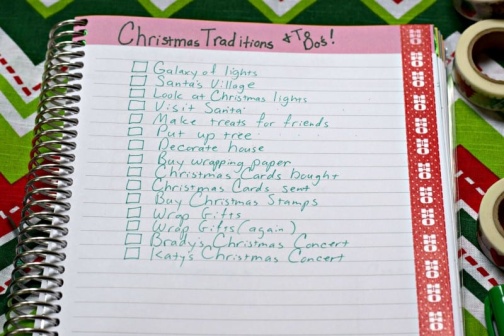 Christmas Traditions & TBos!
Galaxy of lights
Santa's Village
Look at Christmas lights
Visit Santa
Make treats for friends
Put up tree
Decorate house
Buy wrapping paper
Christmas Cards bought
Christmas Cards sent
Buy Christmas Stamps
Wrap Gifts
Wrap Gifts (again)
Brady's Christmas Concert
Katy's Christmas Concert